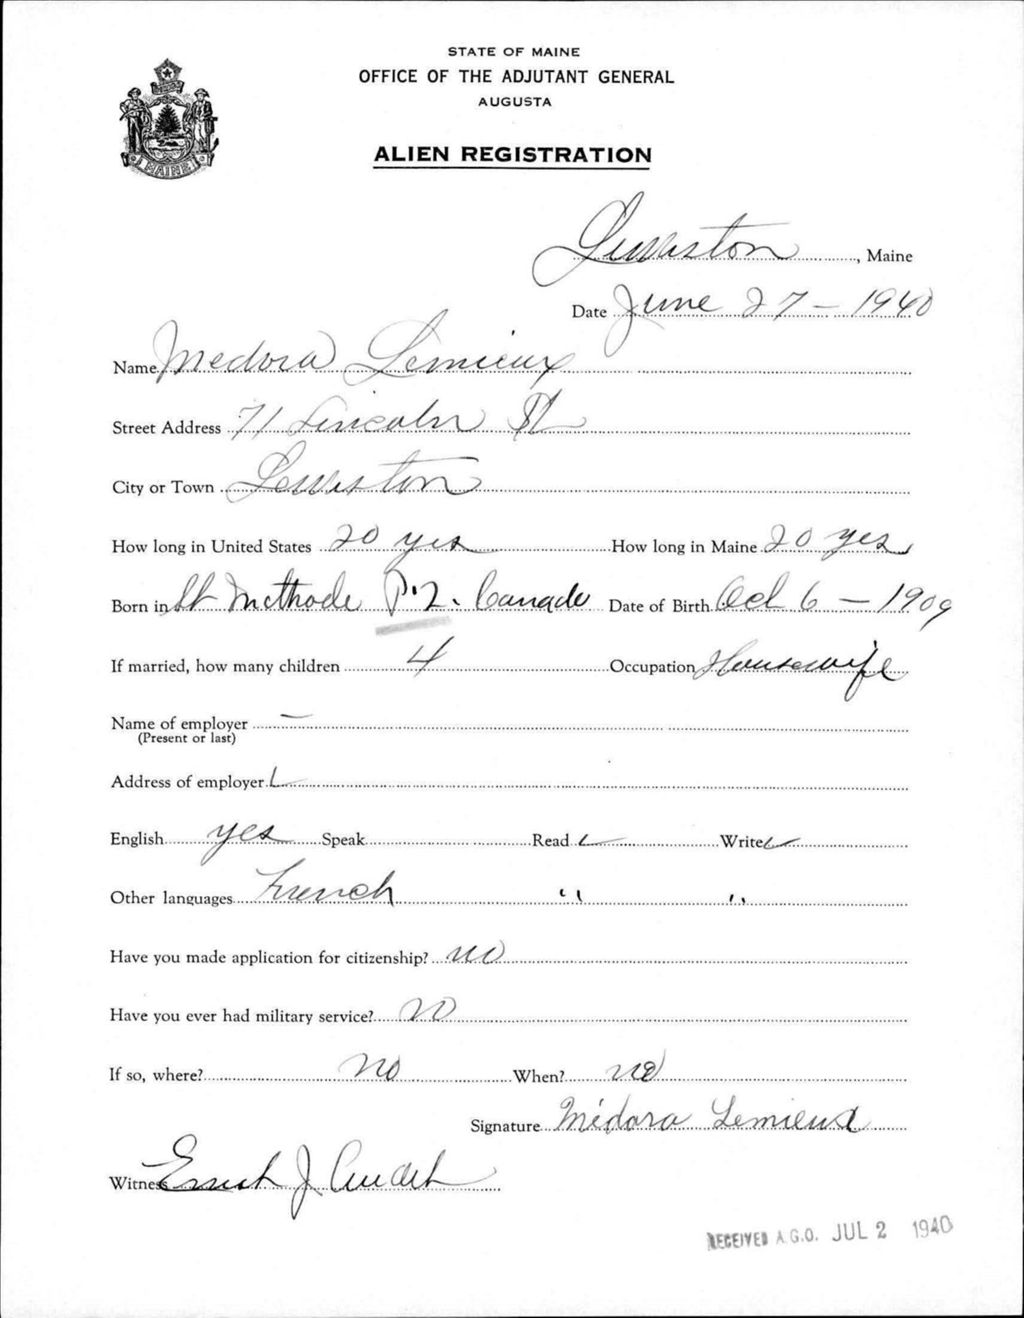 STATE OF MAINE
OFFICE OF THE ADJUTANT GENERAL
AUGUSTA
MAINE
ALIEN REGISTRATION
Lewiston, Maine
Date June 27 - 1940
Name Medora Lemieux
Street Address 71 Lincoln St
City or Town Lewiston
How long in United States 20 yrs How long in Maine 20 yrs
Born in St Methode P.Q. Canada Date of Birth Oct 6 - 1909
If married, how many children 4 Occupation Housewife
Name of employer -
(Present or last)
Address of employer
English yes Speak Read Write
Other languages French " "
Have you made application for citizenship? no
Have you ever had military service? no
If so, where? no When? no
Signature Médora Lemieux
Witness J Audet
RECEIVED A.G.O. JUL 2 1940